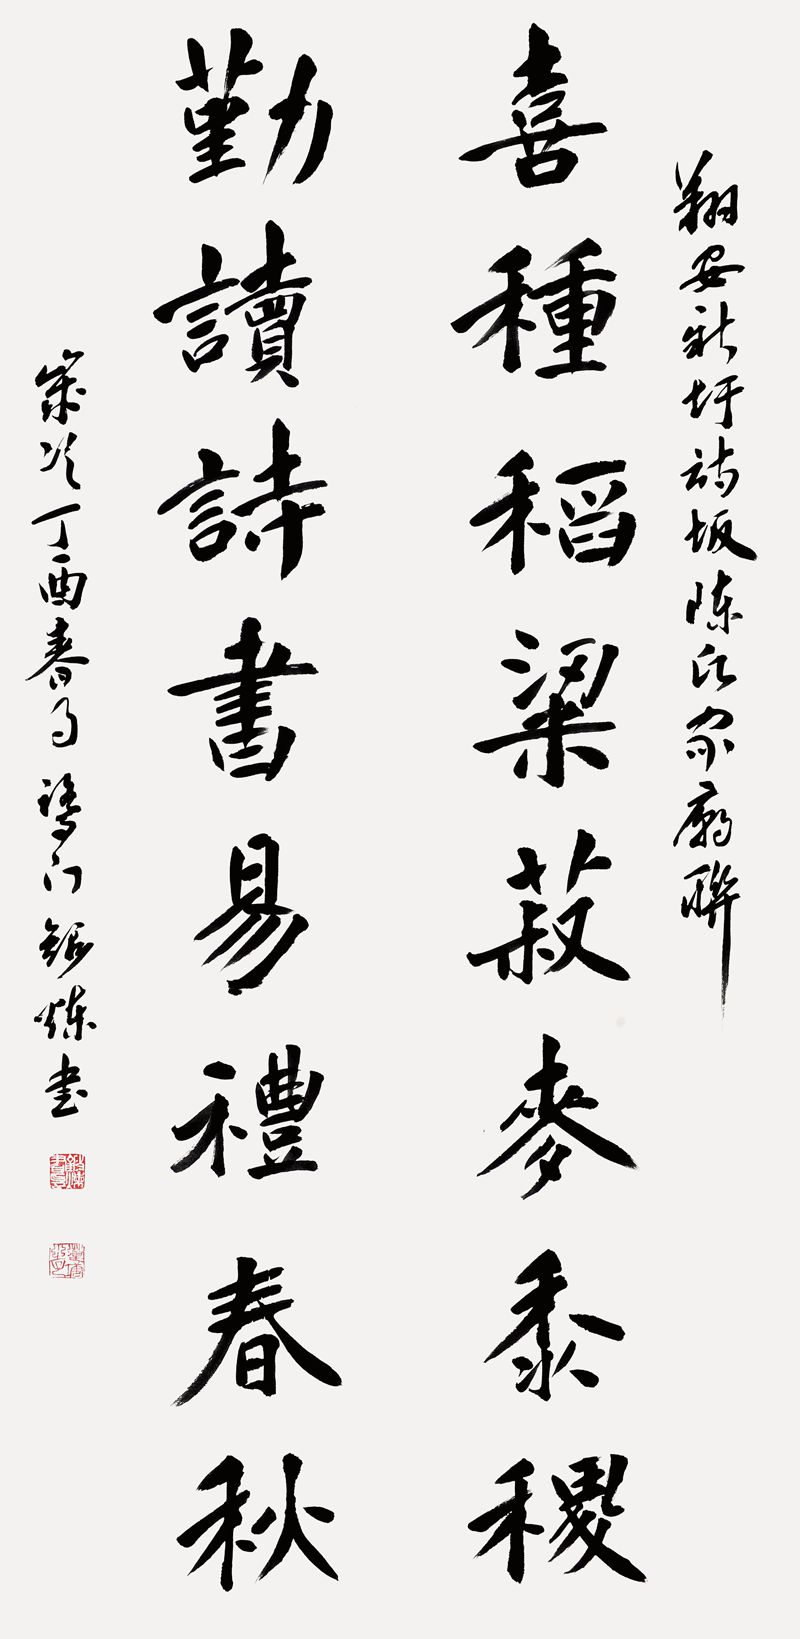 翔安新圩诗坂陈氏家廟聯
喜種稻粱菽麥黍稷
勤讀詩書易禮春秋
歲次丁酉春月鹭门炼书